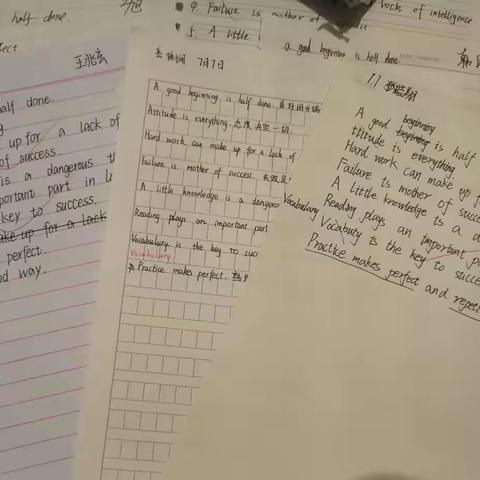 half done.
4. Failure is mother of
lack of intelligence
5. A little
a good beginning is half done
half done.
up for a lack of
of success.
is a dangerous
important part in
key to success.
make up for a lack
perfect.
way.
7月7日
A good beginning is half done.
Attitude is everything. 态度决定一切.
Hard work can make up for a lack of
Failure is mother of success.
A little knowledge is a dangerous
Reading plays an important part
Vocabulary is the key to succ
Vocabulary
Practice makes perfect.
Vocabulary
7.7
beginning
A good beginning is half
ttitude is everything
Hard work can make up f
Failure is mother of succe
A little knowledge is a d
Reading plays an important pa
Vocabuty is the key to succe
Practice makes perfect and repeti